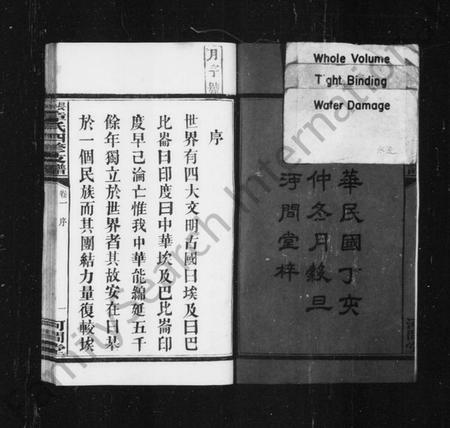 Whole Volume
Tight Binding
Water Damage
水漬
華民國丁亥
仲冬月穀旦
河間堂梓
序
世界有四大文明古國曰埃及曰巴
比崙曰印度曰中華埃及巴比崙印
度早已淪亡惟我中華能綿延五千
餘年獨立於世界者其故安在曰基
於一個民族而其團結力量復較埃
氏四修支譜
卷一
序
一
河間堂
FamilySearch International